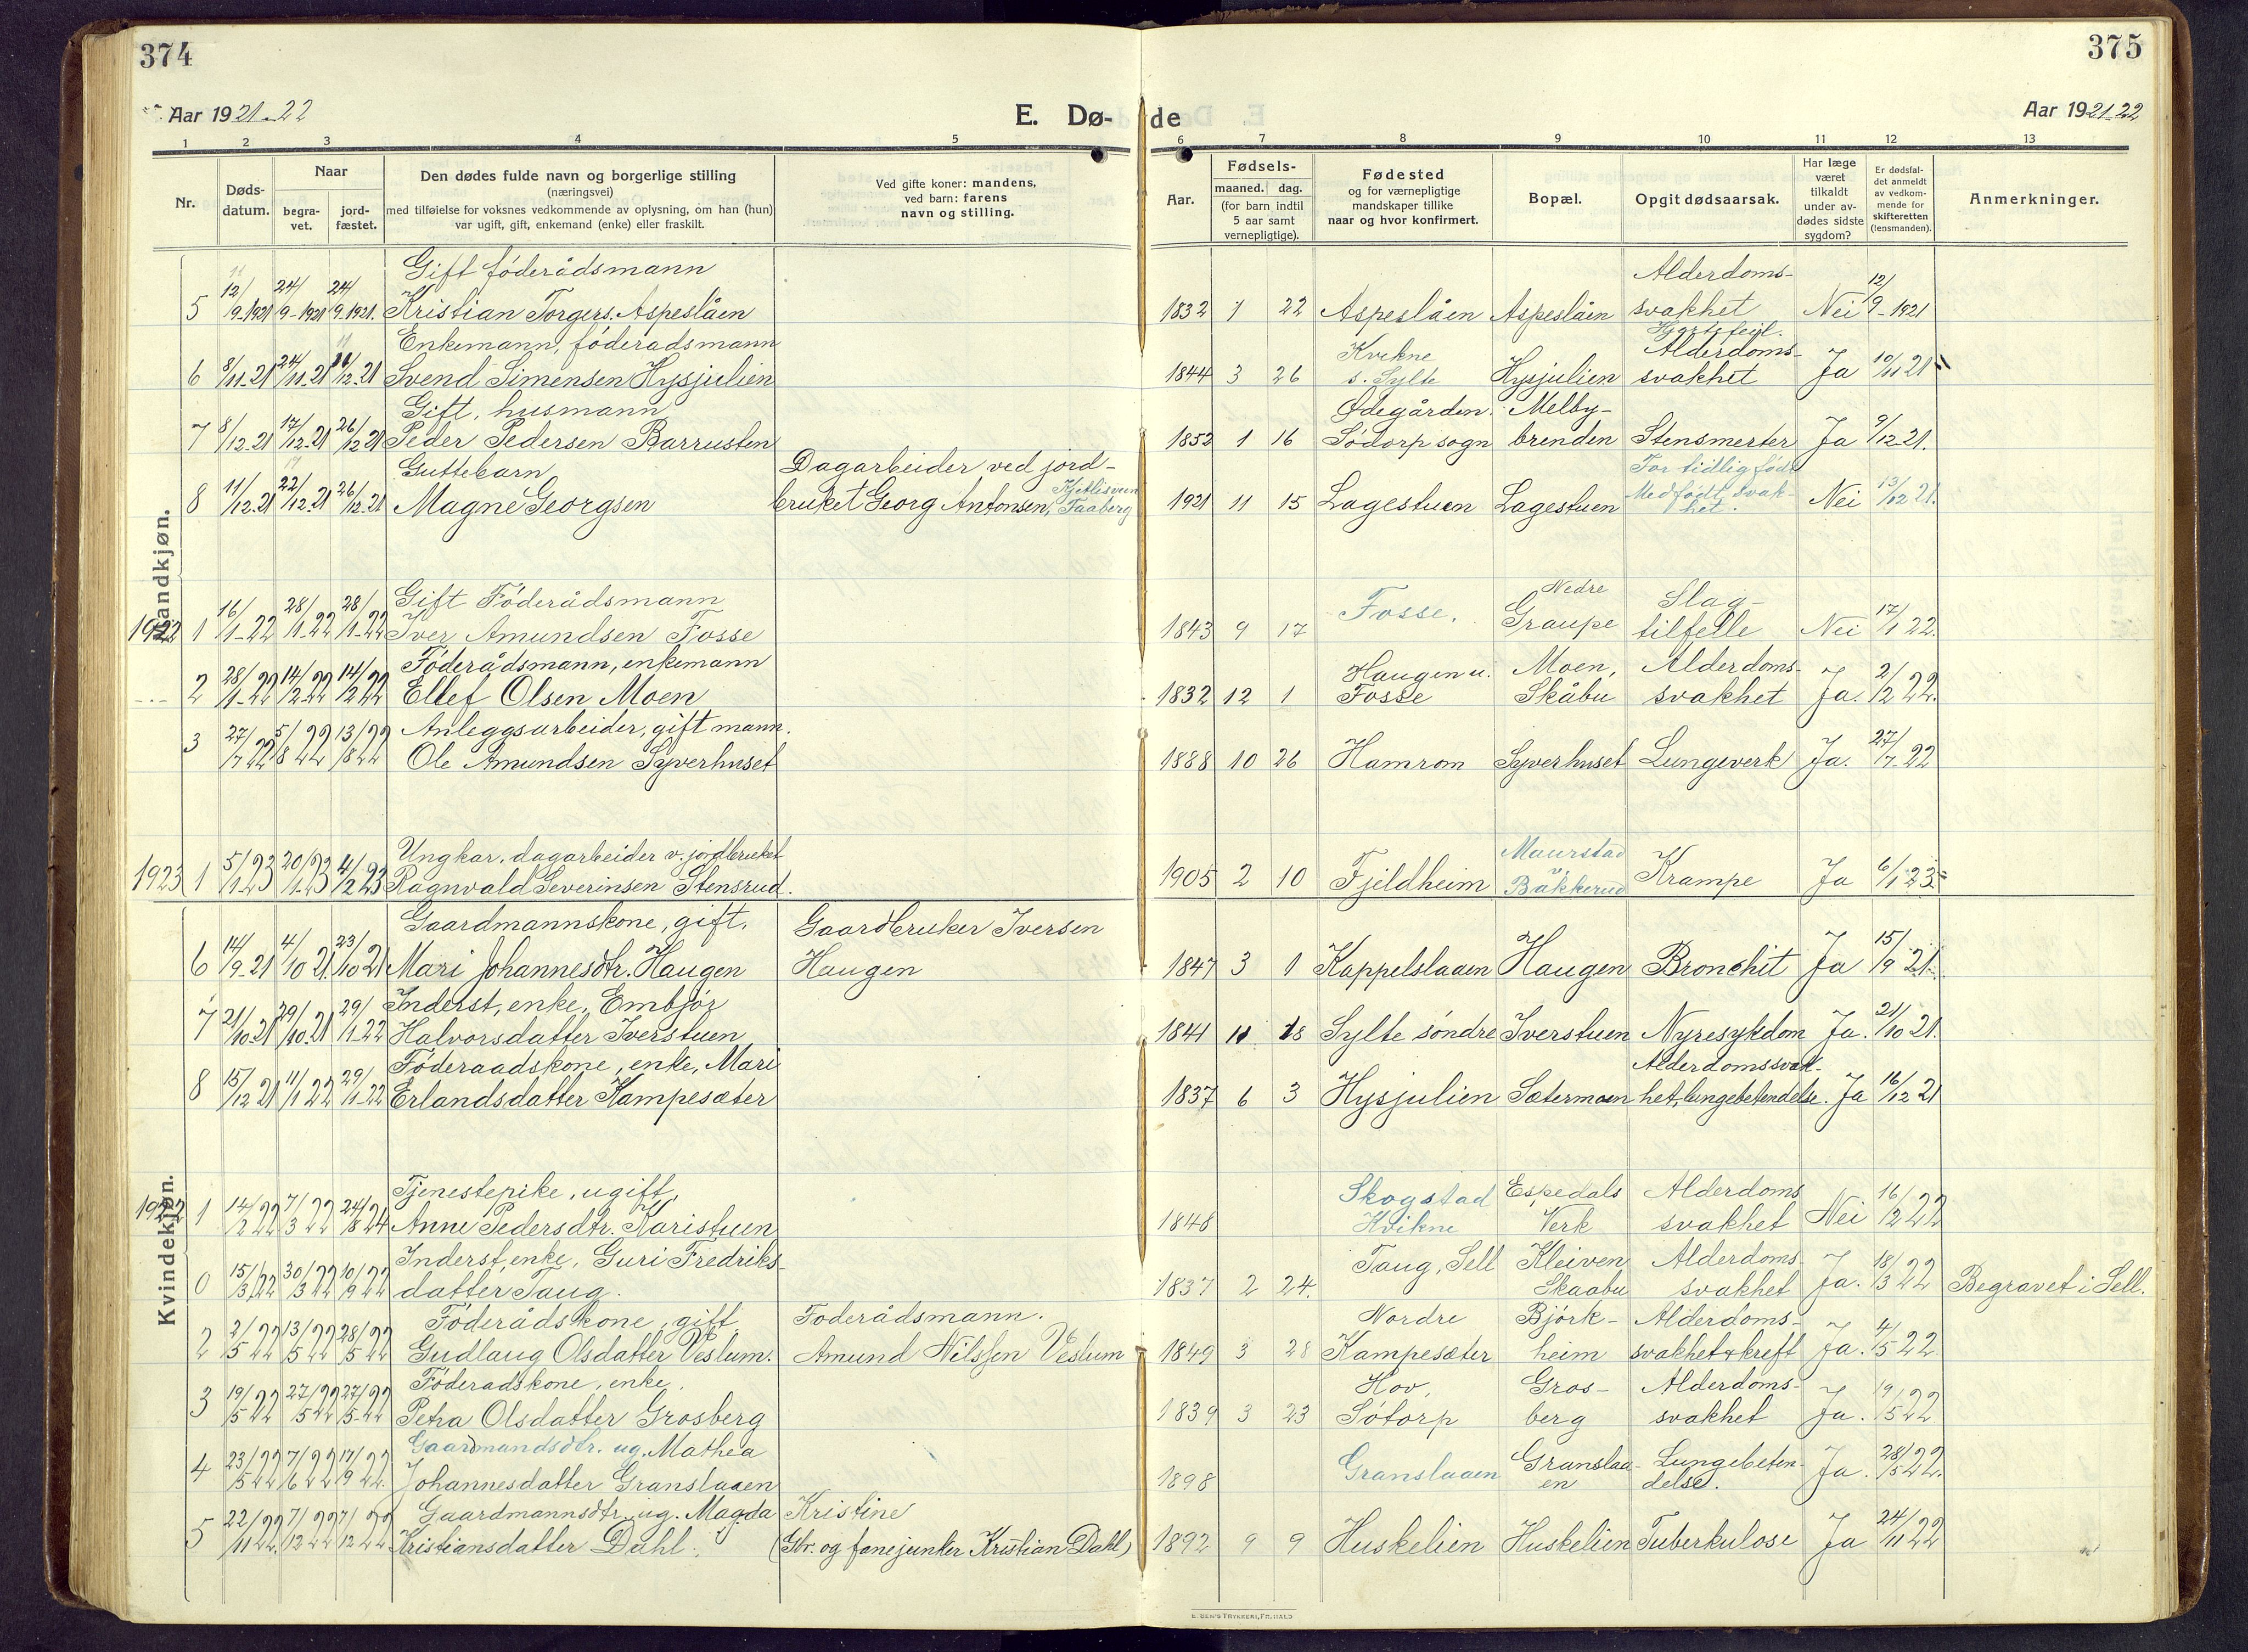 374
Aar 1921-22
E. Dø-
1 2 3 4 5
Nr.
Døds-
datum.
Naar
begra-
vet.
jord-
fæstet.
Den dødes fulde navn og borgerlige stilling
(næringsvei)
med tilføielse for voksnes vedkommende av oplysning, om han (hun)
var ugift, gift, enkemand (enke) eller fraskilt.
Ved gifte koner: mandens,
ved barn: farens
navn og stilling.
375
de
Aar 1921-22
6 7 8 9 10 11 12 13
Aar.
Fødsels-
maaned. dag.
(for barn indtil
5 aar samt
vernepligtige).
Fødested
og for værnepligtige
mandskaper tillike
naar og hvor konfirmert.
Bopæl.
Opgit dødsaarsak.
Har læge
været
tilkaldt
under av-
dødes sidste
sygdom?
Er dødsfal-
det anmeldt
av vedkom-
mende for
skifteretten
(lensmanden).
Anmerkninger.
Mandkjøn.
Gift föderådsmann Alderdoms-
5 12/9-1921 24/9-1921 24/9 1921. Kristian Torgers. Aspeslåen 1832 1 22 Aspeslåen Aspeslåen svakhet Nei 12/9-1921
Enkemann, föderadsmann Kvikne Hjertefeil. Alderdoms-
6 8/11-21 24/11-21 11/12-21 Svend Simensen Hysjulien 1844 3 26 s. Sylte Hysjulien svakhet Ja 10/11 21
Gift, husmann Ødegården. Melby-
7 8/12-21 17/12-21 26/12 21 Peder Pedersen Barrusten 1852 1 16 Södorp sogn brenden Stensmerter Ja 9/12-21.
Guttebarn Dagarbeider ved jord- For tidlig født
8 11/12-21 22/12-21 26/12-21 Magne Georgsen bruket Georg Antonsen, Faaberg 1921 11 15 Lagestuen Lagestuen Medfødt svak-het. Nei 13/12 21.
Gift Föderådsmann Nedre Slag-
1922 1 16/1-22 28/1-22 28/1-22 Iver Amundsen Fosse 1843 9 17 Fosse. Graupe tilfelle Nei 17/1 22.
Föderådsmann, enkemann Haugen u. Moen, Alderdoms-
2 28/1-22 14/2-22 14/2 22 Ellef Olsen Moen 1832 12 1 Fosse Skåbu svakhet Ja. 2/2 22.
Anleggsarbeider, gift mann.
3 27/7 22 5/8 22 13/8 22 Ole Amundsen Syverhuset 1888 10 26 Hamrom Syverhuset Lungeverk Ja. 27/7-22
Ungkar, dagarbeider v. jordbruket Maurstad
1923 1 5/1-23 20/1-23 4/2 23 Ragnvald Severinsen Stensrud. 1905 2 10 Fjeldheim v. Bakkerud Krampe Ja 6/1 23
Kvindekjøn.
Gaardmannskone, gift. Gaardbruker Iversen
6 14/9-21 4/10 21. 23/10 21 Mari Johannesdtr. Haugen Haugen 1847 3 1 Kappelslaaen Haugen Bronchit Ja 15/9 21.
Inderst, enke, Embjör
7 21/10-21 29/10-21 29/1-22 Halvorsdatter Iverstuen 1841 11 18 Sylte söndre Iverstuen Nyresykdom Ja. 21/10 21.
Föderaadskone, enke, Mari Alderdomssvak-
8 15/12 21 11/1 22 29/1-22 Erlandsdatter Kampesæter 1837 6 3 Hysjulien Sætermoen het, lungebetendelse. Ja 16/12 21
Tjenestepike, ugift, Skogstad Espedals Alderdoms
1922 1 14/2 22 7/3 22 24/8 24 Anne Pedersdtr. Karistuen 1848 Kvikne Verk svakhet Nei 16/12 22
Inderst, enke, Guri Fredriks- Taug, Sell Kleiven Alderdoms-
0 15/3 22 30/3 22 10/9 22 datter Taug. 1837 2 24. Skaabu svakhet Ja. 18/3 22 Begravet i Sell.
Föderådskone, gift Foderådsmann. Nordre Björk- Alderdoms-
2 2/5 22 13/5 22 28/5 22 Gudlaug Olsdatter Veslum. Amund Nilssen Veslum 1849 3 28 Kampesæter heim svakhet & kreft Ja. 4/5 22.
Föderadskone, enke, Hov, Gros- Alderdoms-
3 19/5 22 27/5 22 27/5-22 Petra Olsdatter Grosberg 1839 3 23 Sötorp berg svakhet Ja. 19/5 22
Gaardmandsdtr. ug. Mathea Granslaa- Lungebeten-
4 23/5 22 7/6 22 17/9 22. Johannesdatter Granslaaen 1898 Granslaaen en delse. Ja. 28/5 22.
Gaardmannsdtr. ug. Magda Kristine
5 22/11 22. 7/12 22 7/12 22 Kristiansdatter Dahl. (Gbr. og fanejunker Kristian Dahl) 1892 9 9 Huskelien Huskelien Tuberkulose Ja 24/11 22